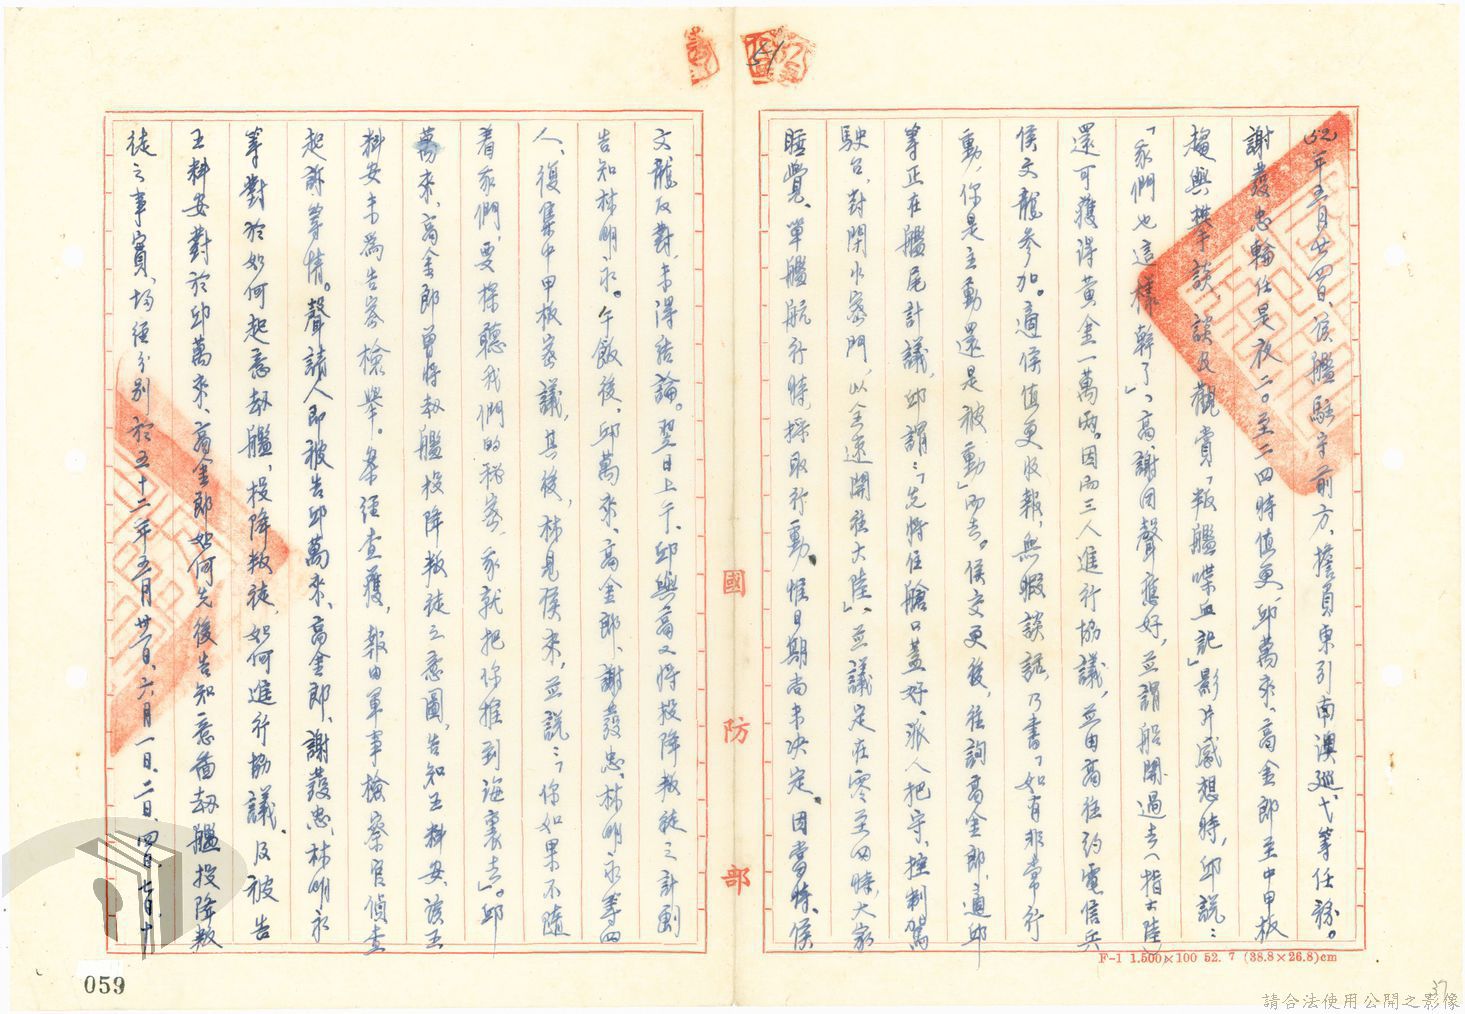 52年五月廿四日,該艦駐守前方,擔負東引南澳巡弋等任務。
謝發忠輪任是夜二〇至二四時值更,邱萬來、高金郎至中甲板
趨與攀談,談及觀賞「叛艦喋血記」影片感想時,邱說:
「我們也這樣幹了」,高、謝同聲應好,並謂船開過去(指大陸)
還可獲得黃金一萬兩。因而三人進行協議,並由高往約電信兵
侯文龍參加。適侯值更收報,無暇談話,乃書「如有非常行
動,你是主動還是被動」而去。侯交更後,往詢高金郎,適邱
等正在艦尾計議,邱謂:「先將住艙口蓋好,派人把守,控制駕
駛台,封閉水密門,以全速開往大陸」,並議定在零至四時,大家
睡覺、單艦航行時,採取行動,惟日期尚未決定,因當時、侯
文龍反對,未得結論。翌日上午、邱與高又將投降叛徒之計劃
告知林明永。午飯後,邱萬來、高金郎、謝發忠、林明永等四
人、復集中甲板密議,其後,林見侯來,並說:「你如果不隨
着我們要探聽我們的秘密,我就把你推到海裏去」。邱
萬來、高金郎曾將劫艦投降叛徒之意圖,告知王料安,該王
料安未為告密檢舉。案經查獲,報由軍事檢察官偵查
起訴等情。聲請人即被告邱萬來、高金郎、謝發忠、林明永
等對於如何起意劫艦,投降叛徒,如何進行協議,及被告
王料安對於邱萬來、高金郎如何先後告知意圖劫艦投降叛
徒之事實,均經分別於五十二年五月廿一日、六月一日、二日、四日、七月、十
國防部
F-1 1.500×100 52. 7 (38.8×26.8)cm
059
37
請合法使用公開之影像